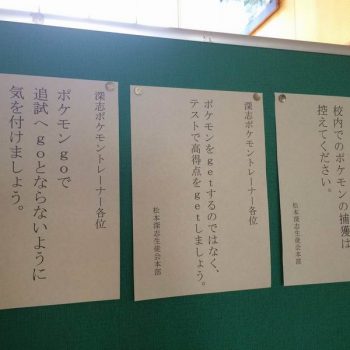 校内でのポケモンの捕獲は
控えてください。
松本深志生徒会本部
深志ポケモントレーナー各位
ポケモンをgetするのではなく、
テストで高得点をgetしましょう。
松本深志生徒会本部
深志ポケモントレーナー各位
ポケモンgoで
追試へgoとならないように
気を付けましょう。